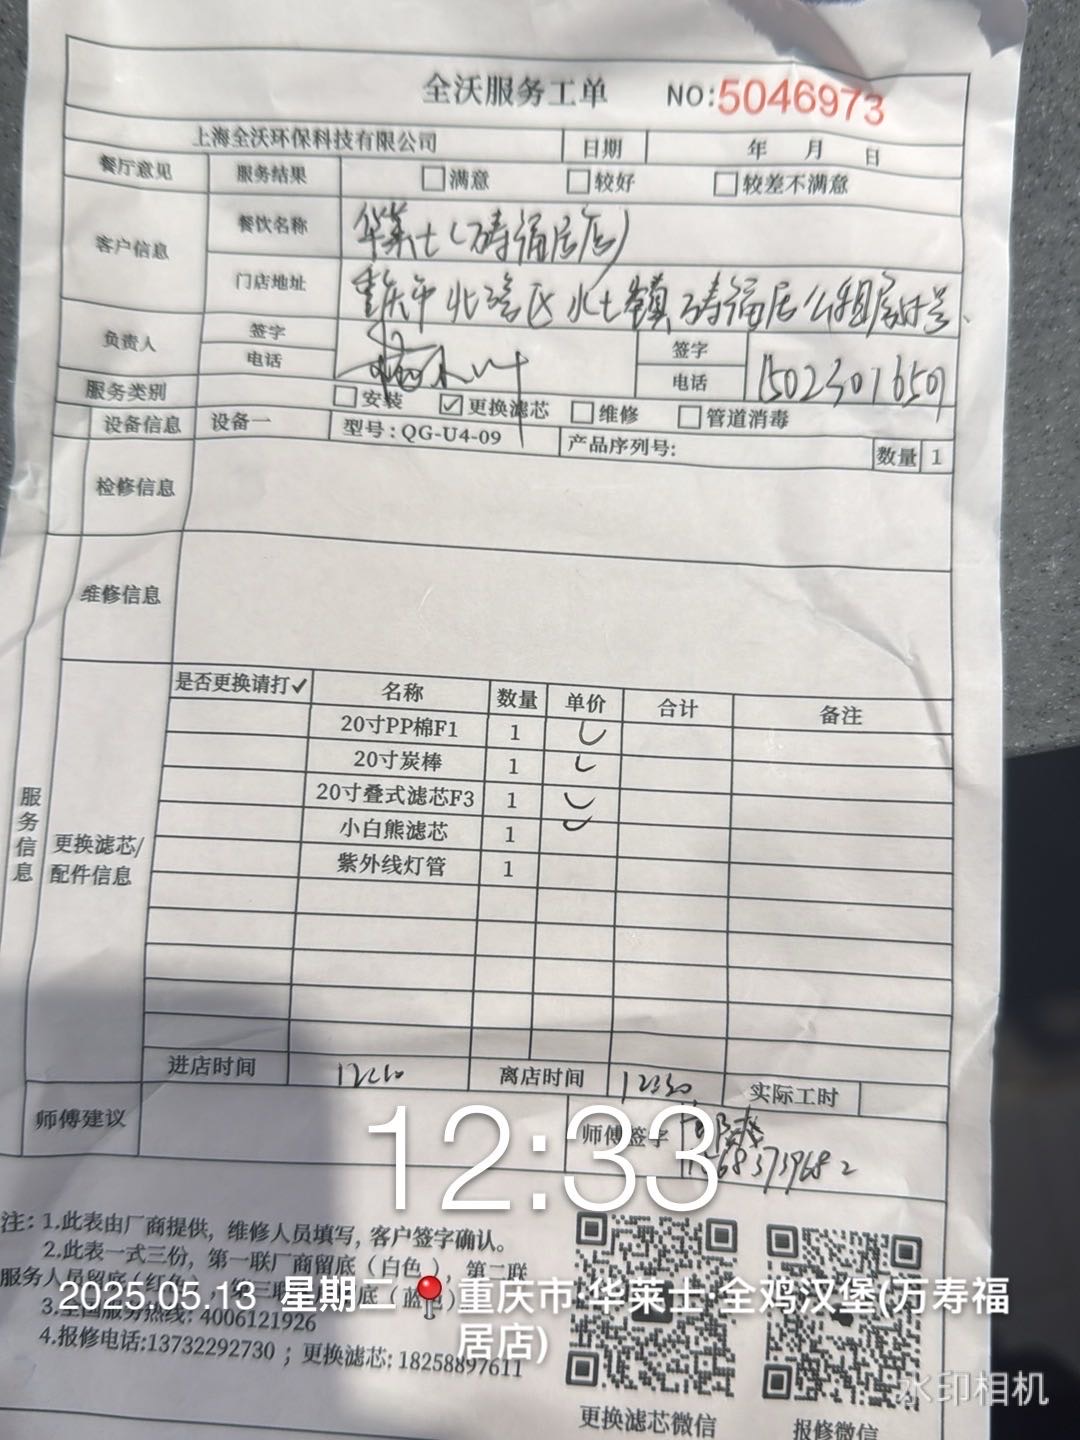 全沃服务工单 NO:5046973
上海全沃环保科技有限公司 日期 年 月 日
餐厅意见 服务结果 □满意 □较好 □较差不满意
客户信息 餐饮名称 华莱士(万寿福居店)
门店地址 重庆市北碚区水土镇万寿福居公租房
负责人 签字 签字
电话 电话 15023016509
服务类别 □安装 ☑更换滤芯 □维修 □管道消毒
设备信息 设备一 型号:QG-U4-09 产品序列号: 数量 1
检修信息
维修信息
服务信息
更换滤芯/配件信息
是否更换请打✓ 名称 数量 单价 合计 备注
20寸PP棉F1 1 ✓
20寸炭棒 1 ✓
20寸叠式滤芯F3 1 ✓
小白熊滤芯 1 ✓
紫外线灯管 1
进店时间 离店时间 1230 实际工时
师傅建议 师傅签字
12:33
注: 1.此表由厂商提供，维修人员填写，客户签字确认。
2.此表一式三份，第一联厂商留底(白色)，第二联
服务人员留底
2025.05.13 星期二 重庆市·华莱士·全鸡汉堡(万寿福
居店)
3.全国服务热线: 4006121926
4.报修电话:13732292730 ; 更换滤芯: 18258897611
更换滤芯微信 报修微信
水印相机